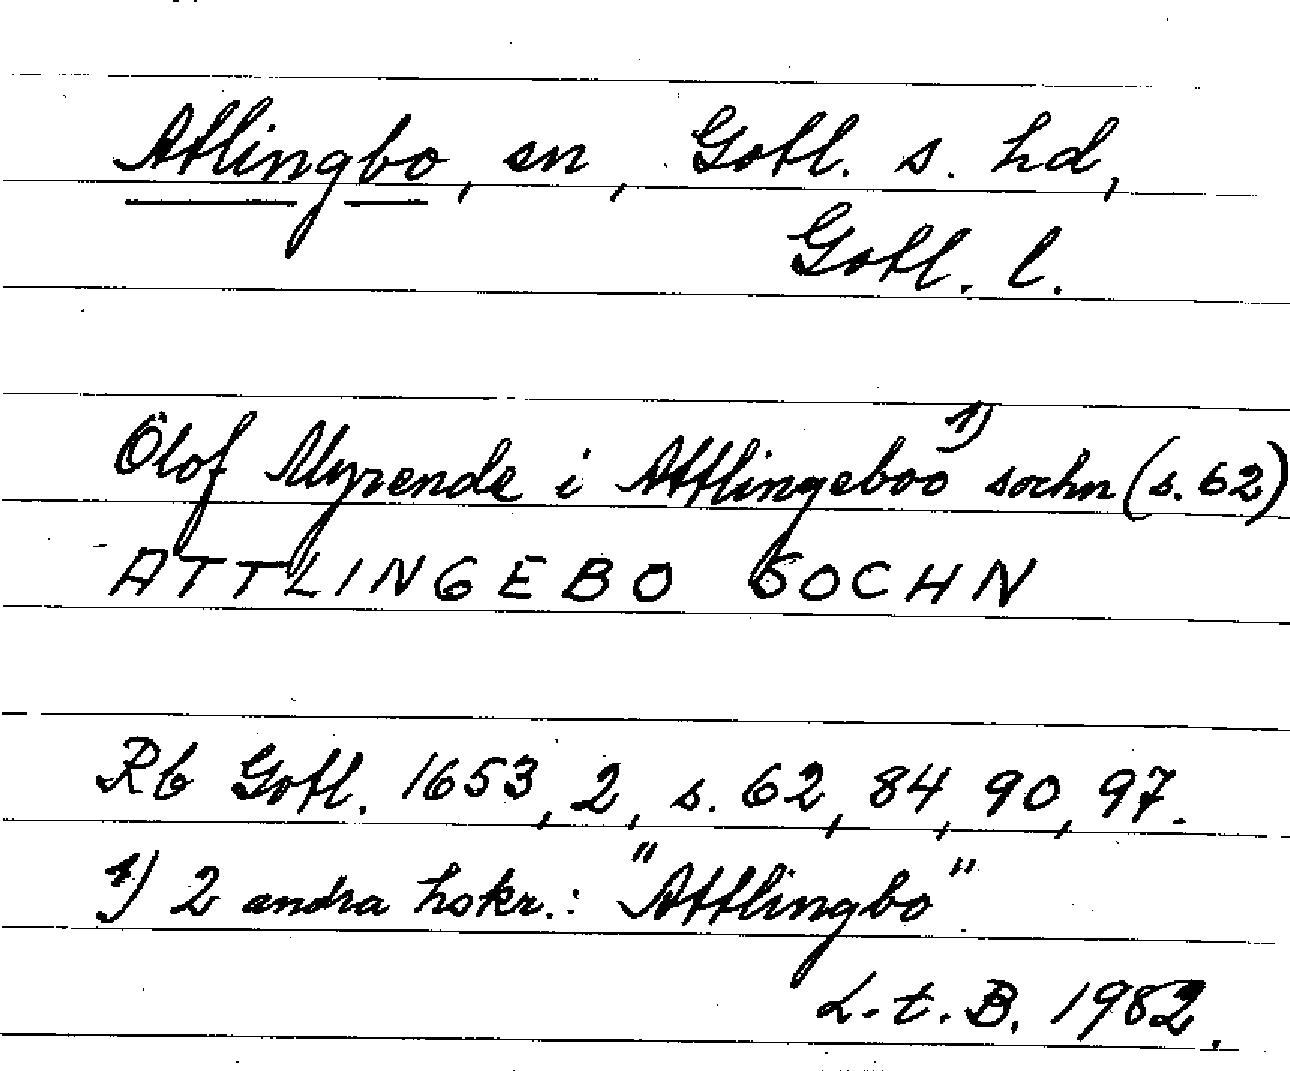 Atlingbo, sn, Gotl. s. hd,
Gotl. l.
Olof Myrende i Attlingeboo 1) sochn (s. 62)
ATTLINGEBO SOCHN
Rb Gotl. 1653, 2, s. 62, 84, 90, 97.
1) 2 andra hskr.: "Attlingbo"
L. t. B. 1982.